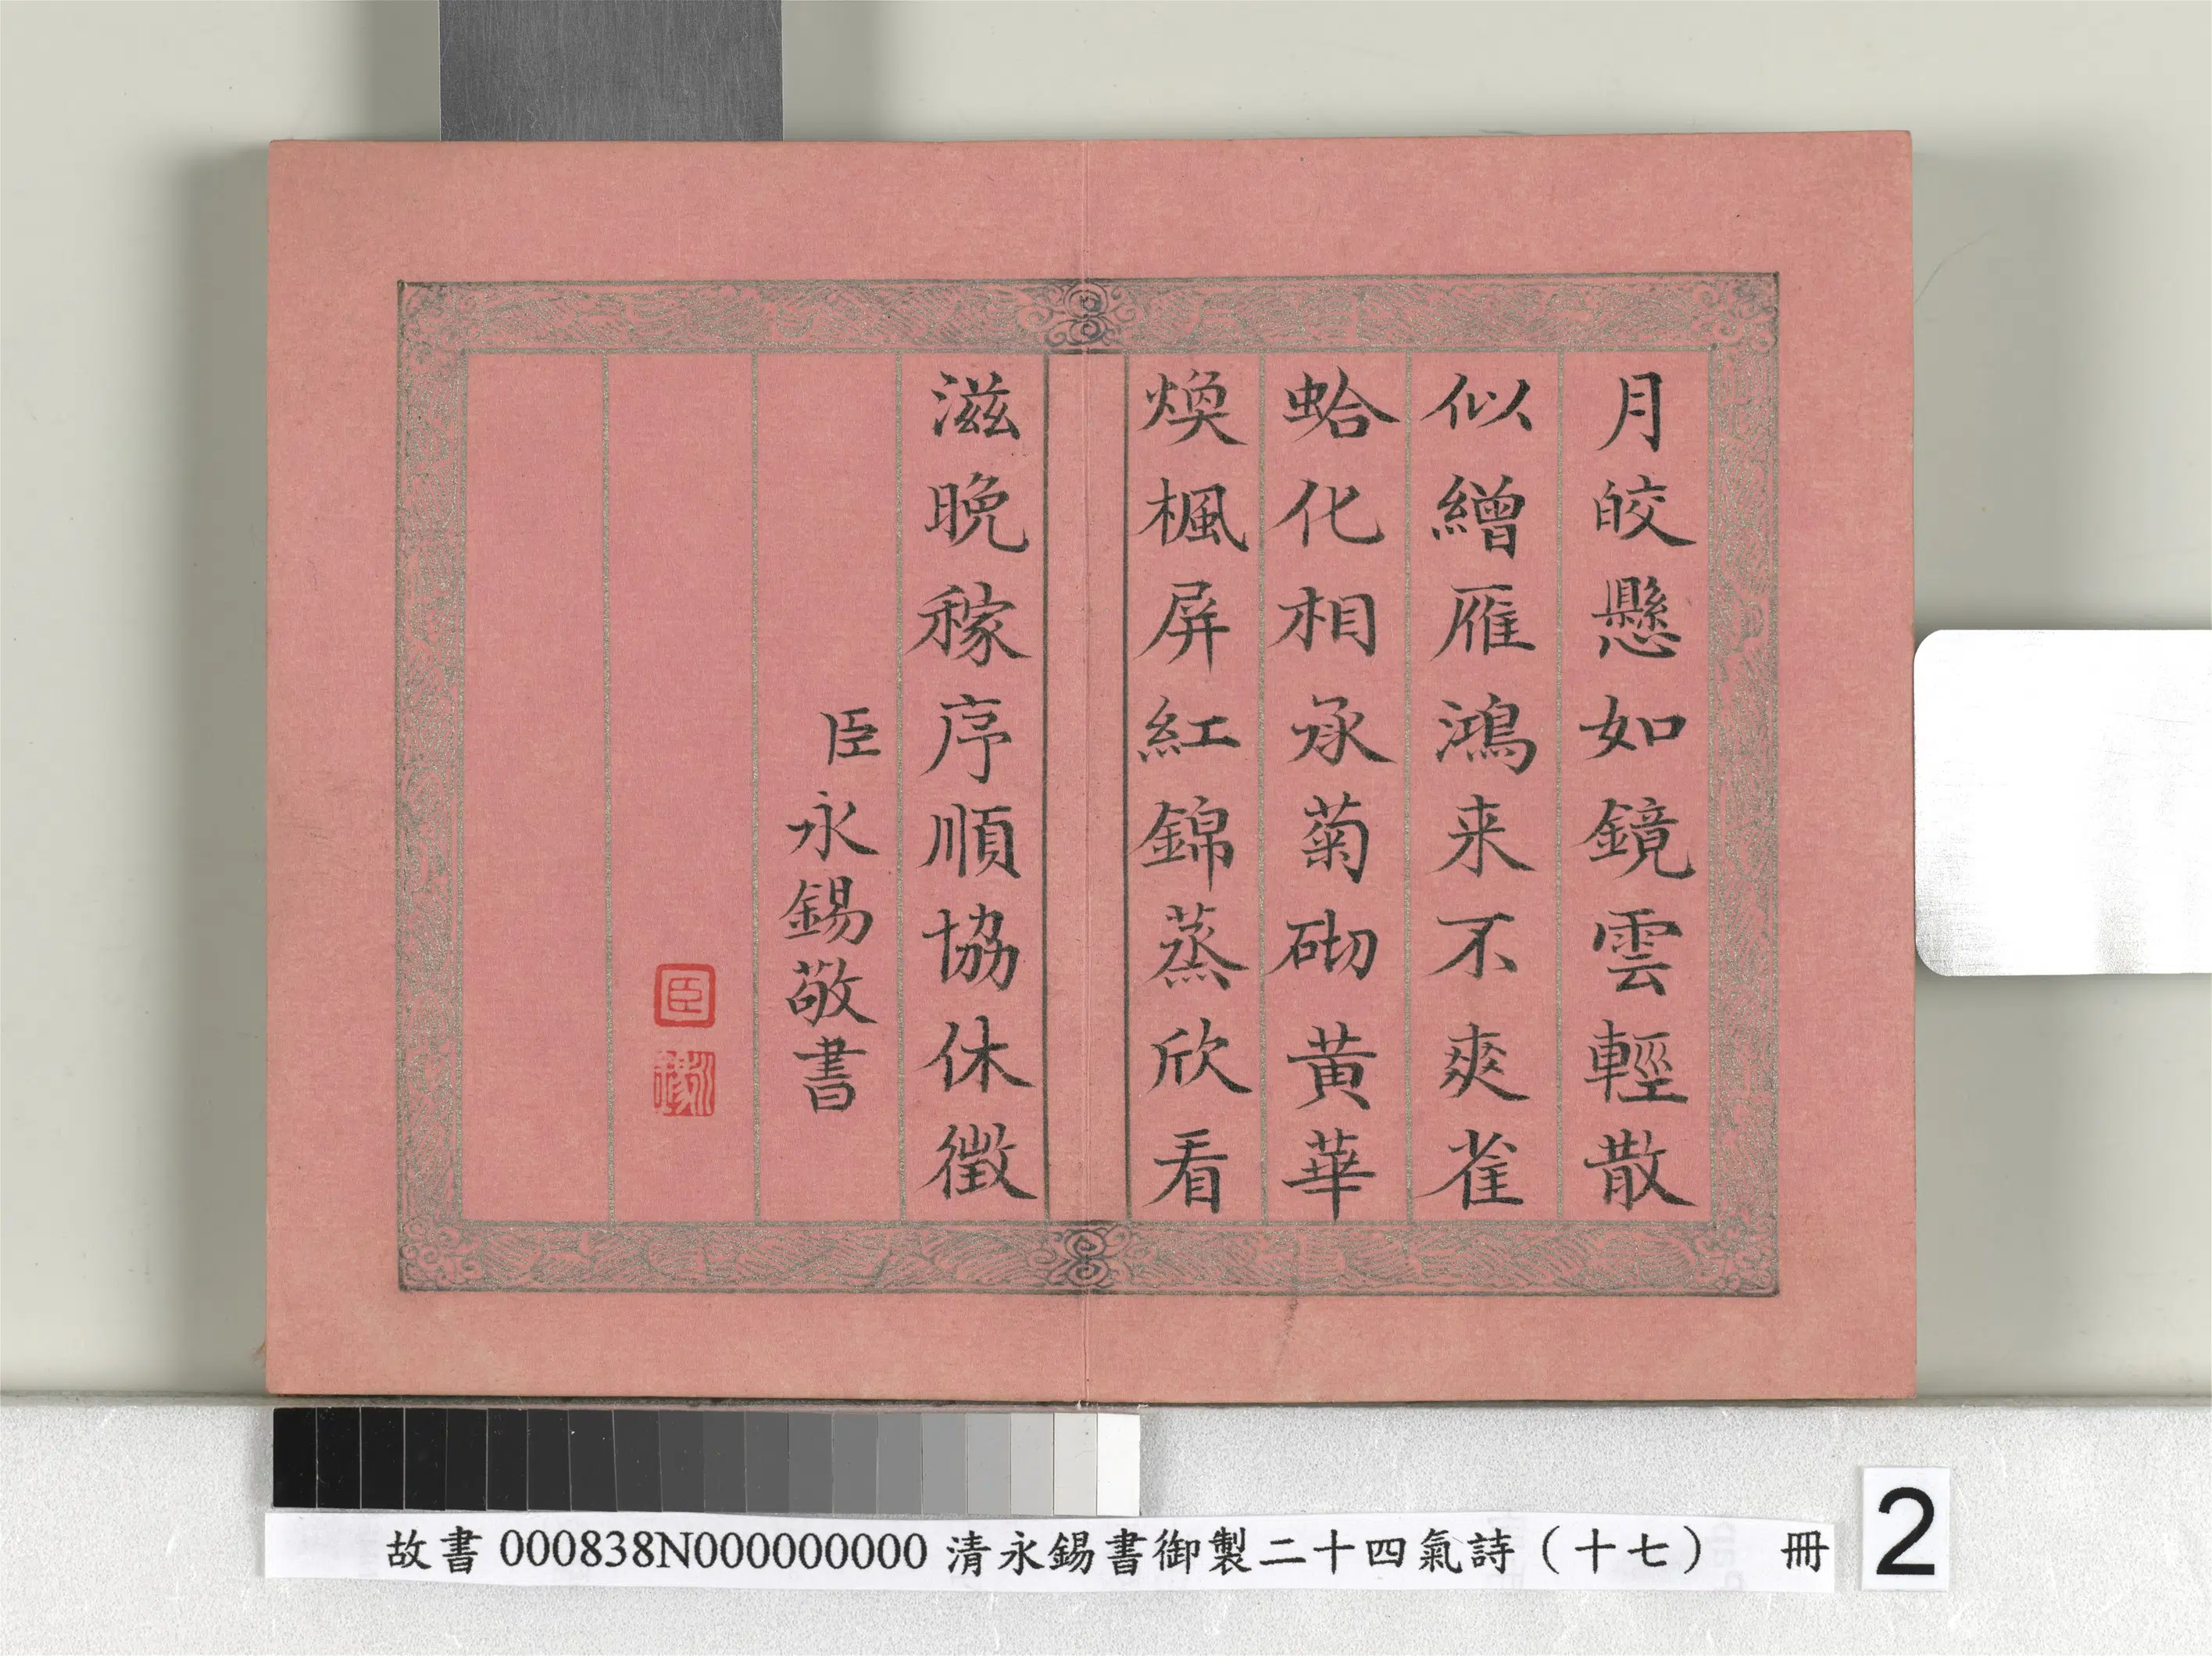 月皎懸如鏡雲輕散
似繒雁鴻来不爽雀
蛤化相承菊砌黃華
煥楓屏紅錦蒸欣看
滋晚稼序順協休徵
臣永錫敬書
臣
故書000838N000000000 清永錫書御製二十四氣詩（十七） 冊
2